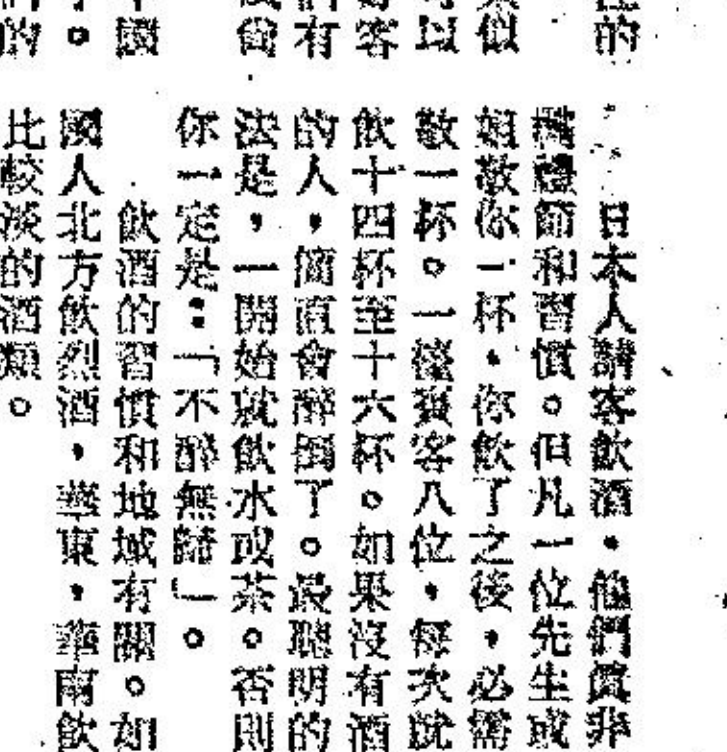 的
似
以
客
們有
當
中國
。
的的
日本人請客飲酒，他們真非
禮節和習慣。但凡一位先生或
姐敬你一杯，你飲了之後，必需
敬一杯。一檯賓客八位，每次就
飲十四杯至十六杯。如果沒有酒
的人，簡直會醉倒了。最聰明的
法是，一開始就飲水或茶。否則
你一定是：「不醉無歸」。
飲酒的習慣和地域有關。如
國人北方飲烈酒，華東，華南飲
比較淡的酒類。